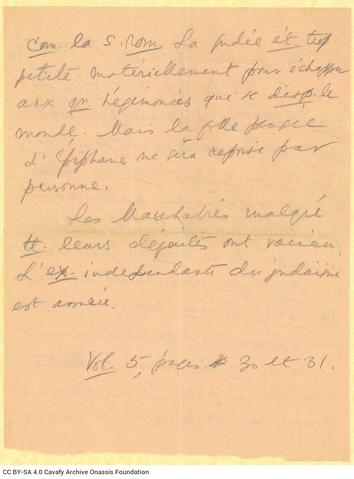 com. la S. rom. La Judée ét. trop
petite matériellement pour échapper
aux gr. hégémonies qui se disp. le
monde. Mais la folle pensée
d'Épiphane ne sera reprise par
personne.
Les Macchabées malgré
leurs défaites ont vaincu.
L'ex. indépendante du judaïsme
est assurée.
Vol. 5, pages 30 et 31.
CC BY-SA 4.0 Cavafy Archive Onassis Foundation